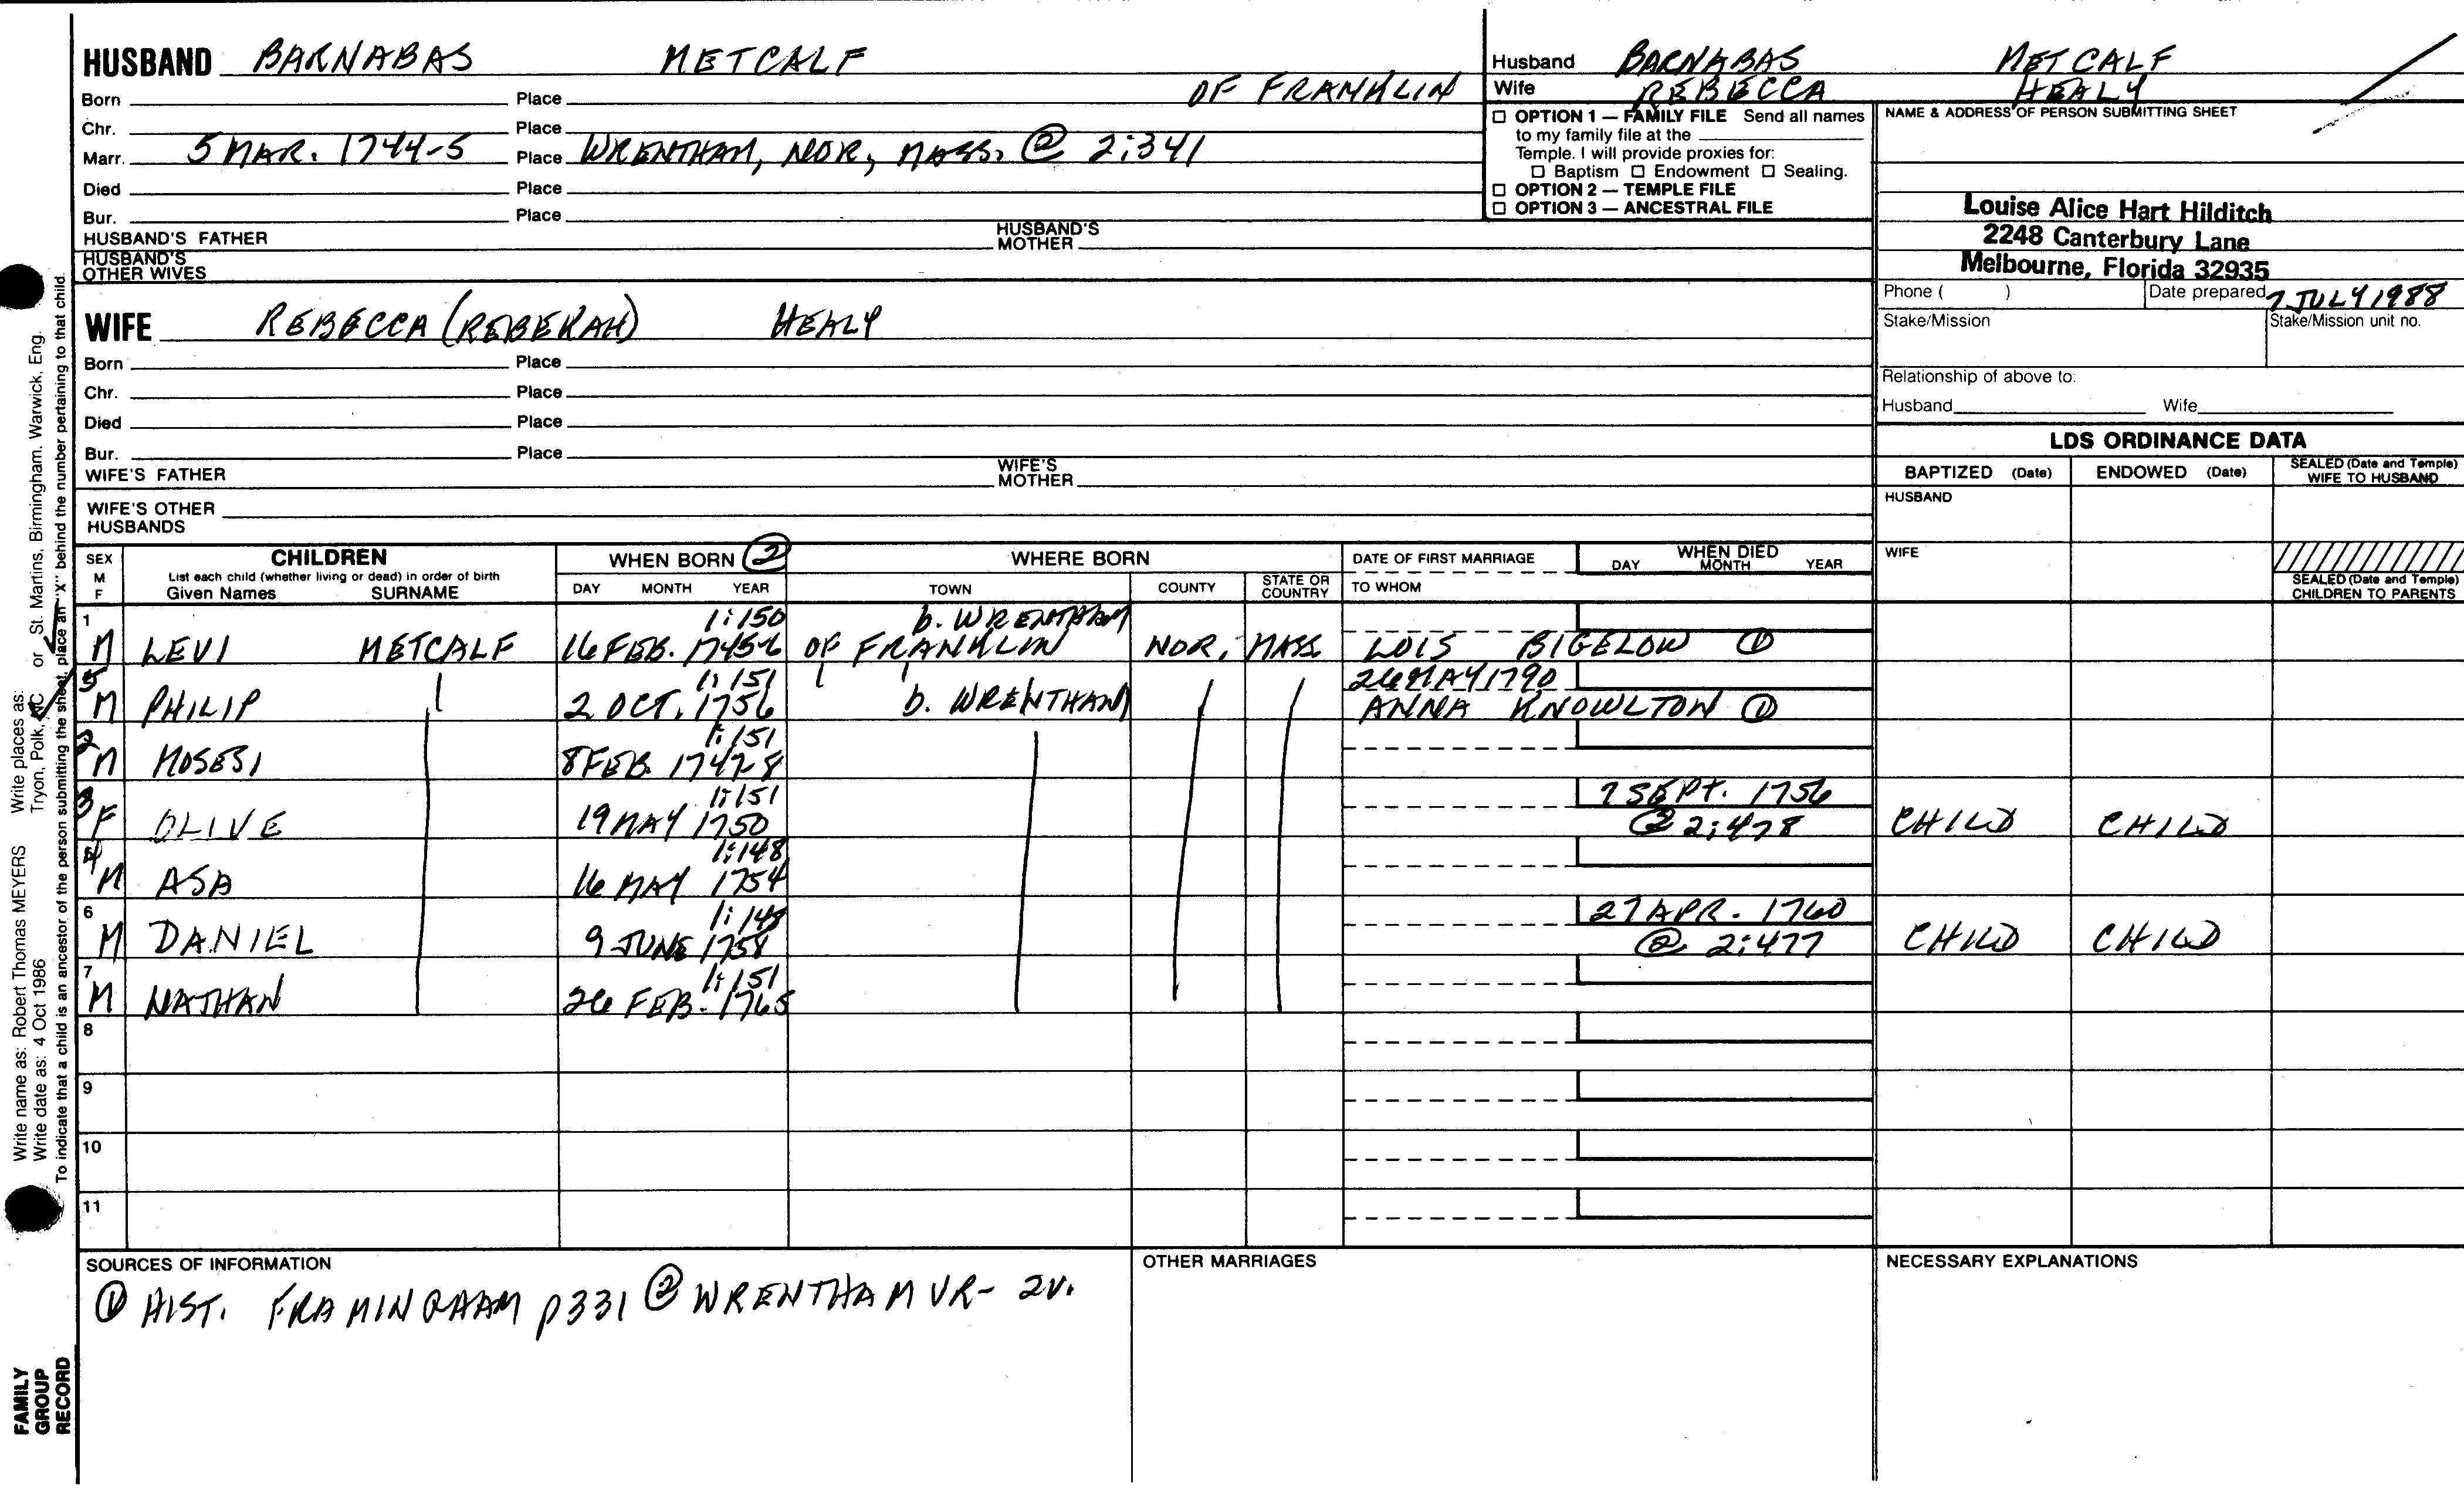 HUSBAND BARNABAS METCALF
OF FRANKLIN
Born Place
Chr. Place
Marr. 5 MAR. 1744-5 Place WRENTHAM, NOR, MASS. ② 2:341
Died Place
Bur. Place
HUSBAND'S FATHER HUSBAND'S MOTHER
HUSBAND'S OTHER WIVES
WIFE REBECCA (REBEKAH) HEALY
Born Place
Chr. Place
Died Place
Bur. Place
WIFE'S FATHER WIFE'S MOTHER
WIFE'S OTHER HUSBANDS
Husband BARNABAS METCALF
Wife REBECCA HEALY
☐ OPTION 1 — FAMILY FILE Send all names
to my family file at the
Temple. I will provide proxies for:
☐ Baptism ☐ Endowment ☐ Sealing.
☐ OPTION 2 — TEMPLE FILE
☐ OPTION 3 — ANCESTRAL FILE
NAME & ADDRESS OF PERSON SUBMITTING SHEET
Louise Alice Hart Hilditch
2248 Canterbury Lane
Melbourne, Florida 32935
Phone ( ) Date prepared 7 JULY 1988
Stake/Mission Stake/Mission unit no.
Relationship of above to:
Husband Wife
LDS ORDINANCE DATA
BAPTIZED (Date) ENDOWED (Date) SEALED (Date and Temple) WIFE TO HUSBAND
HUSBAND
WIFE
SEALED (Date and Temple) CHILDREN TO PARENTS
SEX M F
CHILDREN
List each child (whether living or dead) in order of birth
Given Names SURNAME
WHEN BORN ②
DAY MONTH YEAR
WHERE BORN
TOWN COUNTY STATE OR COUNTRY
DATE OF FIRST MARRIAGE
TO WHOM
WHEN DIED
DAY MONTH YEAR
1 1:150 b. WRENTHAM
M LEVI METCALF 16 FEB. 1745-6 OF FRANKLIN NOR, MASS. LOIS BIGELOW ①
5 1:151 26 MAY 1790
M PHILIP 2 OCT. 1756 b. WRENTHAM ANNA KNOWLTON ①
2 1:151
M MOSES 8 FEB. 1747-8
3 1:151 7 SEPT. 1756
F OLIVE 19 MAY 1750 ② 2:478 CHILD CHILD
4 1:148
M ASA 16 MAY 1754
6 1:148 27 APR. 1760
M DANIEL 9 JUNE 1758 ② 2:477 CHILD CHILD
7 1:151
M NATHAN 26 FEB. 1765
8
9
10
11
SOURCES OF INFORMATION
① HIST. FRAMINGHAM p331 ② WRENTHAM VR- 2V.
OTHER MARRIAGES
NECESSARY EXPLANATIONS
Write name as: Robert Thomas MEYERS Write places as: Tryon, Polk, NC or St. Martins, Birmingham, Warwick, Eng.
Write date as: 4 Oct 1986
To indicate that a child is an ancestor of the person submitting the sheet, place an "X" behind the number pertaining to that child.
FAMILY
GROUP
RECORD